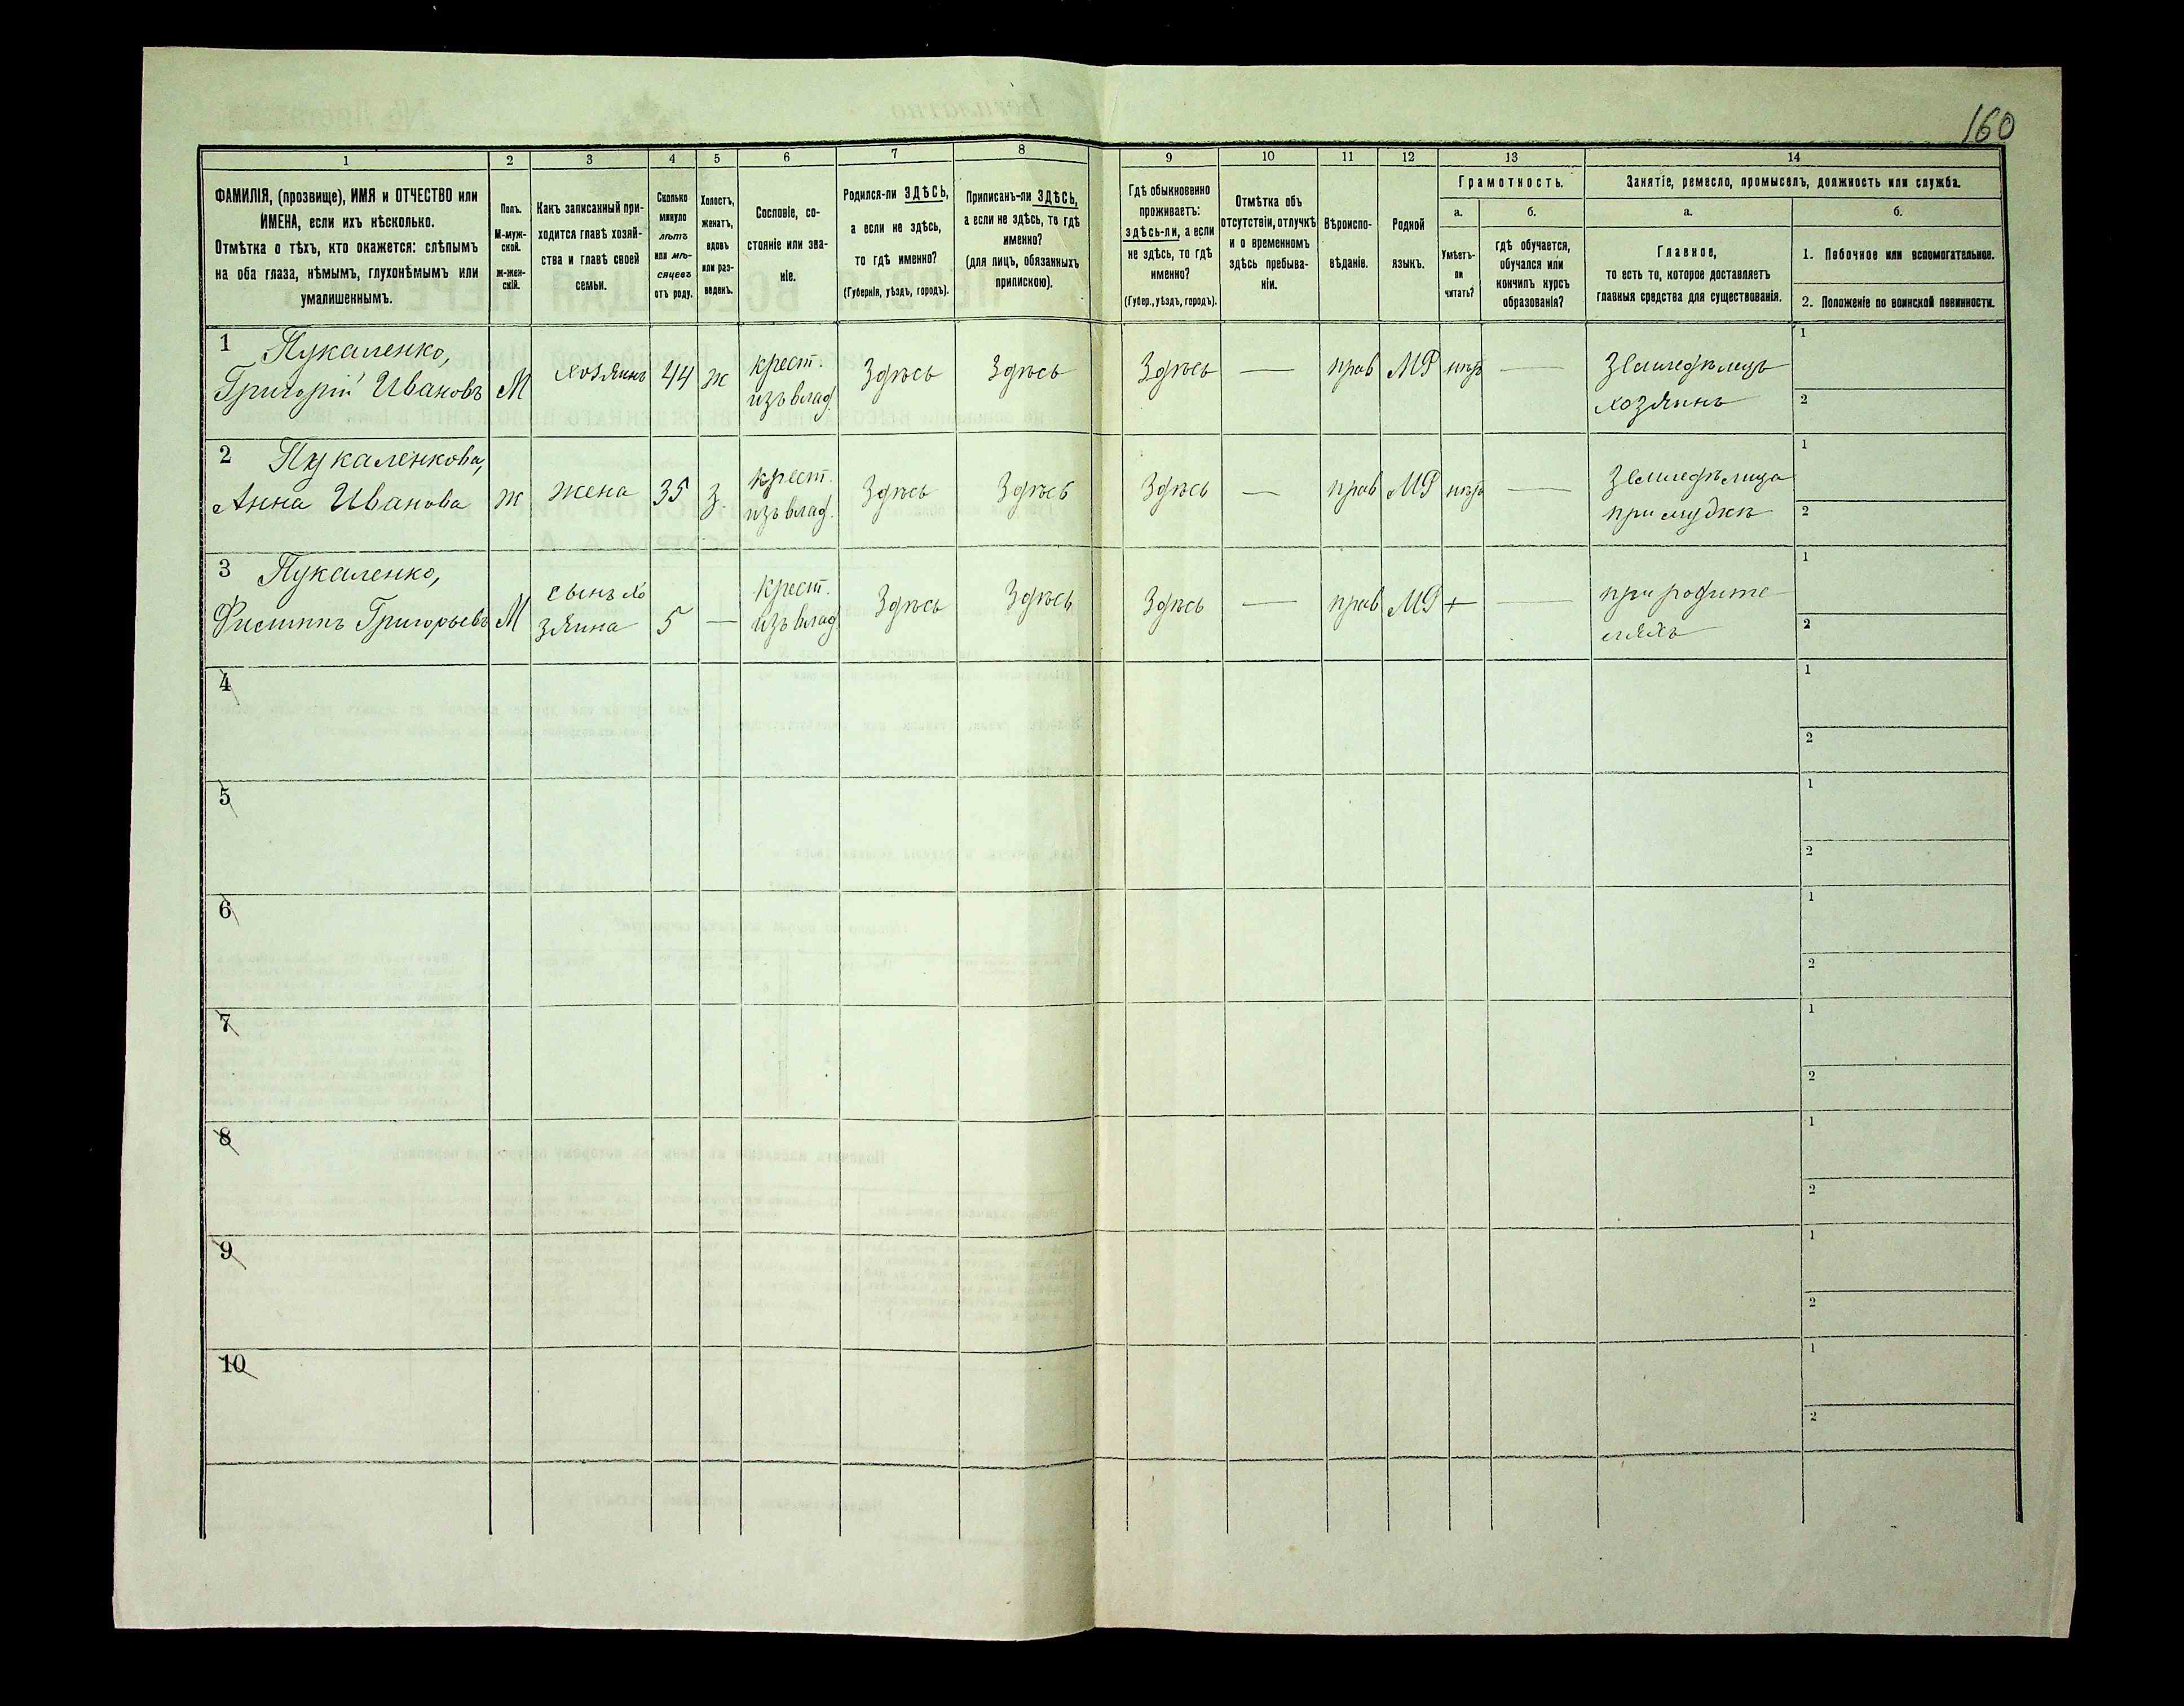 160
1 2 3 4 5 6 7 8 9 10 11 12 13 14
ФАМИЛІЯ, (прозвище), ИМЯ и ОТЧЕСТВО или
ИМЕНА, если ихъ нѣсколько.
Отмѣтка о тѣхъ, кто окажется: слѣпымъ
на оба глаза, нѣмымъ, глухонѣмымъ или
умалишеннымъ.
Полъ.
М-муж-
ской.
ж-жен-
скій.
Какъ записанный при-
ходится главѣ хозяй-
ства и главѣ своей
семьи.
Сколько
минуло
лѣтъ
или мѣ-
сяцевъ
отъ роду.
Холостъ,
женатъ,
вдовъ
или раз-
веденъ.
Сословіе, со-
стояніе или зва-
ніе.
Родился-ли ЗДѢСЬ,
а если не здѣсь,
то гдѣ именно?
(Губернія, уѣздъ, городъ).
Приписанъ-ли ЗДѢСЬ,
а если не здѣсь, то гдѣ
именно?
(для лицъ, обязанныхъ
припискою).
Гдѣ обыкновенно
проживаетъ:
здѣсь-ли, а если
не здѣсь, то гдѣ
именно?
(Губер., уѣздъ, городъ).
Отмѣтка объ
отсутствіи, отлучкѣ
и о временномъ
здѣсь пребыва-
ніи.
Вѣроиспо-
вѣданіе.
Родной
языкъ.
Грамотность.
а.
Умѣетъ-
ли
читать?
б.
гдѣ обучается,
обучался или
кончилъ курсъ
образованія?
Занятіе, ремесло, промыселъ, должность или служба.
а.
Главное,
то есть то, которое доставляетъ
главныя средства для существованія.
б.
1. Побочное или вспомогательное.
2. Положеніе по воинской повинности.
1 Пукаленко,
Григорій Ивановъ
М
хозяинъ
44
ж
крест.
изъ влад.
Здѣсь
Здѣсь
Здѣсь
—
прав
МР
нѣтъ
—
Земледѣлецъ
хозяинъ
1
2
2 Пукаленкова,
Анна Иванова
ж
жена
35
з.
крест.
изъ влад.
Здѣсь
Здѣсь
Здѣсь
—
прав
МР
нѣтъ
—
Земледѣлица
при мужѣ
1
2
3 Пукаленко,
Филиппъ Григорьевъ
М
сынъ хо
зяина
5
—
крест.
изъ влад
Здѣсь
Здѣсь
Здѣсь
—
прав
МР
+
—
при родите
ляхъ
1
2
4
1
2
5
1
2
6
1
2
7
1
2
8
1
2
9
1
2
10
1
2